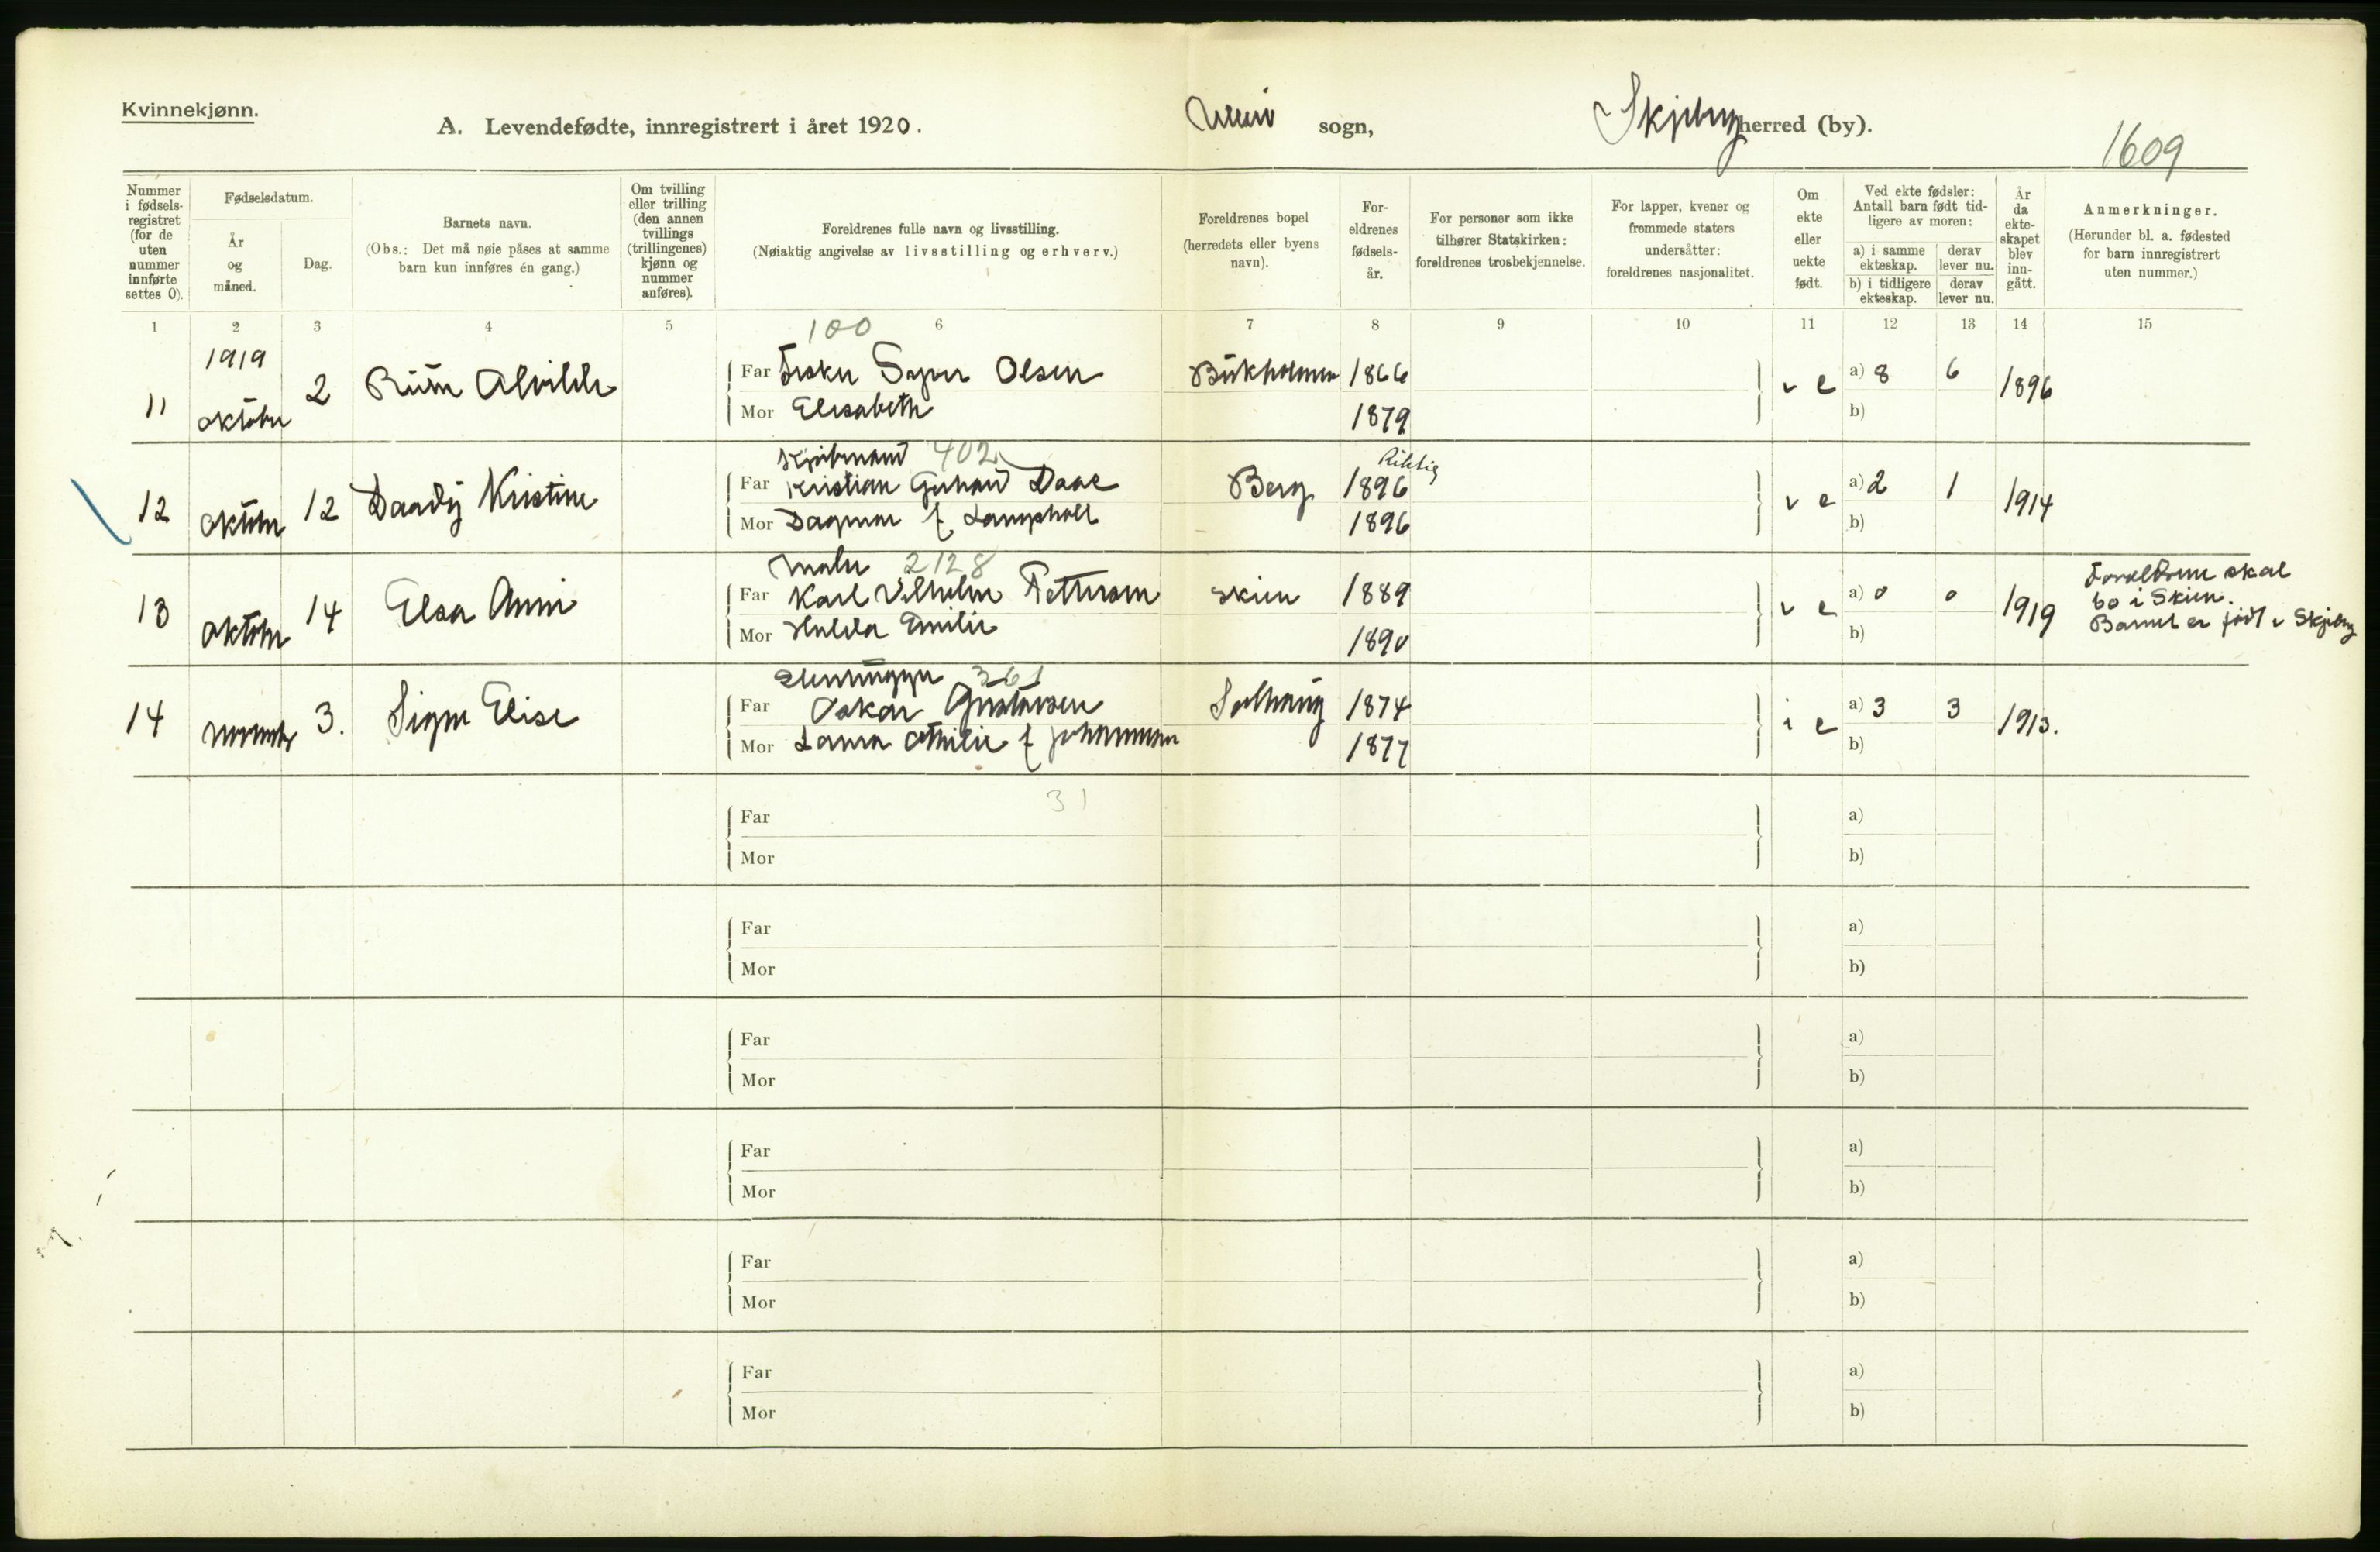 Kvinnekjønn.
A. Levendefødte, innregistrert i året 1920.
Ullerø sogn,
Skjeberg herred (by).
1609
Nummer i fødsels-registret (for de uten nummer innførte settes 0).
Fødselsdatum.
År og måned.
Dag.
Barnets navn.
(Obs.: Det må nøie påses at samme barn kun innføres én gang.)
Om tvilling eller trilling (den annen tvillings (trillingenes) kjønn og nummer anføres).
Foreldrenes fulle navn og livsstilling.
(Nøiaktig angivelse av livsstilling og erhverv.)
Foreldrenes bopel (herredets eller byens navn).
For-eldrenes fødsels-år.
For personer som ikke tilhører Statskirken: foreldrenes trosbekjennelse.
For lapper, kvener og fremmede staters undersåtter: foreldrenes nasjonalitet.
Om ekte eller uekte født.
Ved ekte fødsler: Antall barn født tid-ligere av moren:
a) i samme ekteskap.
derav lever nu.
b) i tidligere ekteskap.
derav lever nu.
År da ekte-skapet blev inn-gått.
Anmerkninger.
(Herunder bl. a. fødested for barn innregistrert uten nummer.)
1 2 3 4 5 6 7 8 9 10 11 12 13 14 15
100
1919
11 oktober 2 Alvilde
Far Fisker Olsen 1866 e a) 8 6 1896
Mor Elisabeth 1879 b)
402
Riktig
12 oktober 12 Daady Kristine
Far Kristian Gerhard Daae Berg 1896 e a) 2 1 1914
Mor Dagmar f Langholt 1896 b)
Maler 2128
13 oktober 14 Elsa Anni
Far Karl Vilhelm Pettersen Skien 1889 e a) 0 0 1919
Mor Hulda Emilie 1890 b)
Foreldrene skal
bo i Skien.
Barnet er født i Skjeberg
Stenhugger 361
14 november 3. Signe Elise
Far Oskar Gustavsen Solhaug 1874 i e a) 3 3 1913.
Mor Laura Othilie f Johannesen 1877 b)
31
Far a)
Mor b)
Far a)
Mor b)
Far a)
Mor b)
Far a)
Mor b)
Far a)
Mor b)
Far a)
Mor b)